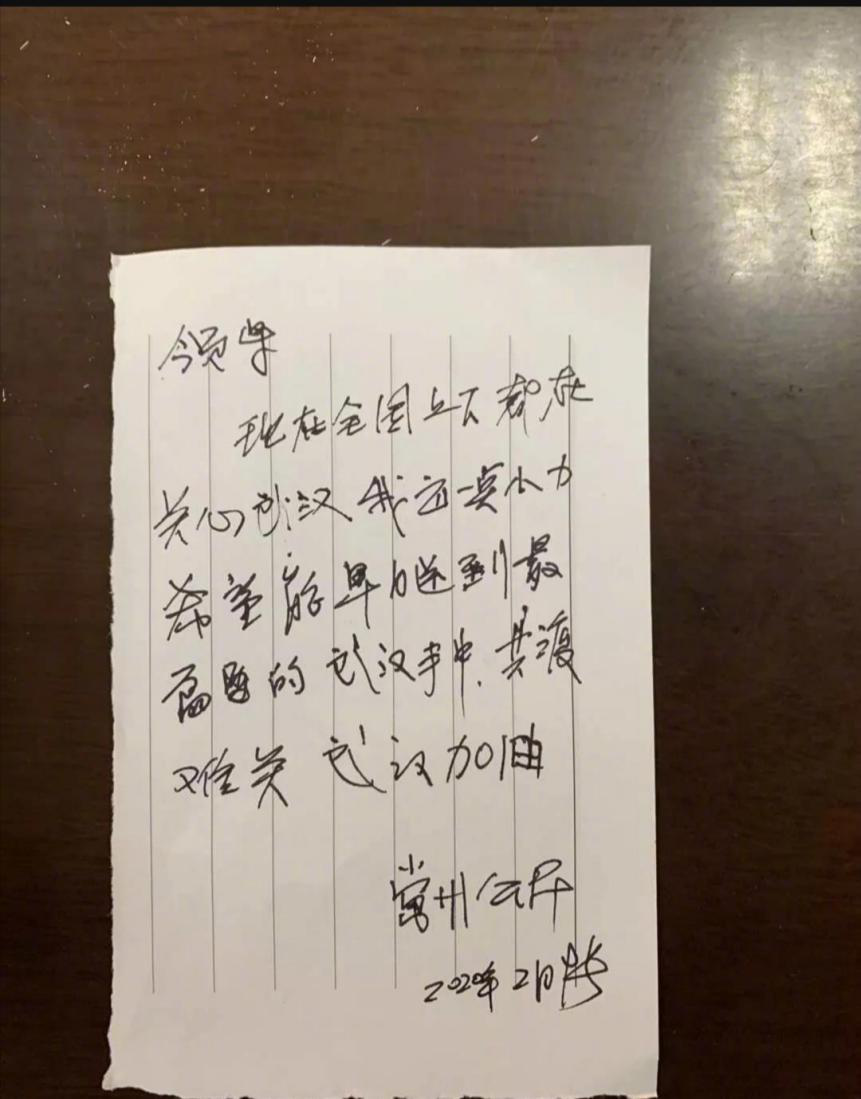 领导
现在全国上下都在
关心武汉 我这一点小力
希望能早日送到最
需要的武汉手中.共渡
难关 武汉加油
常州公民
2020年2月